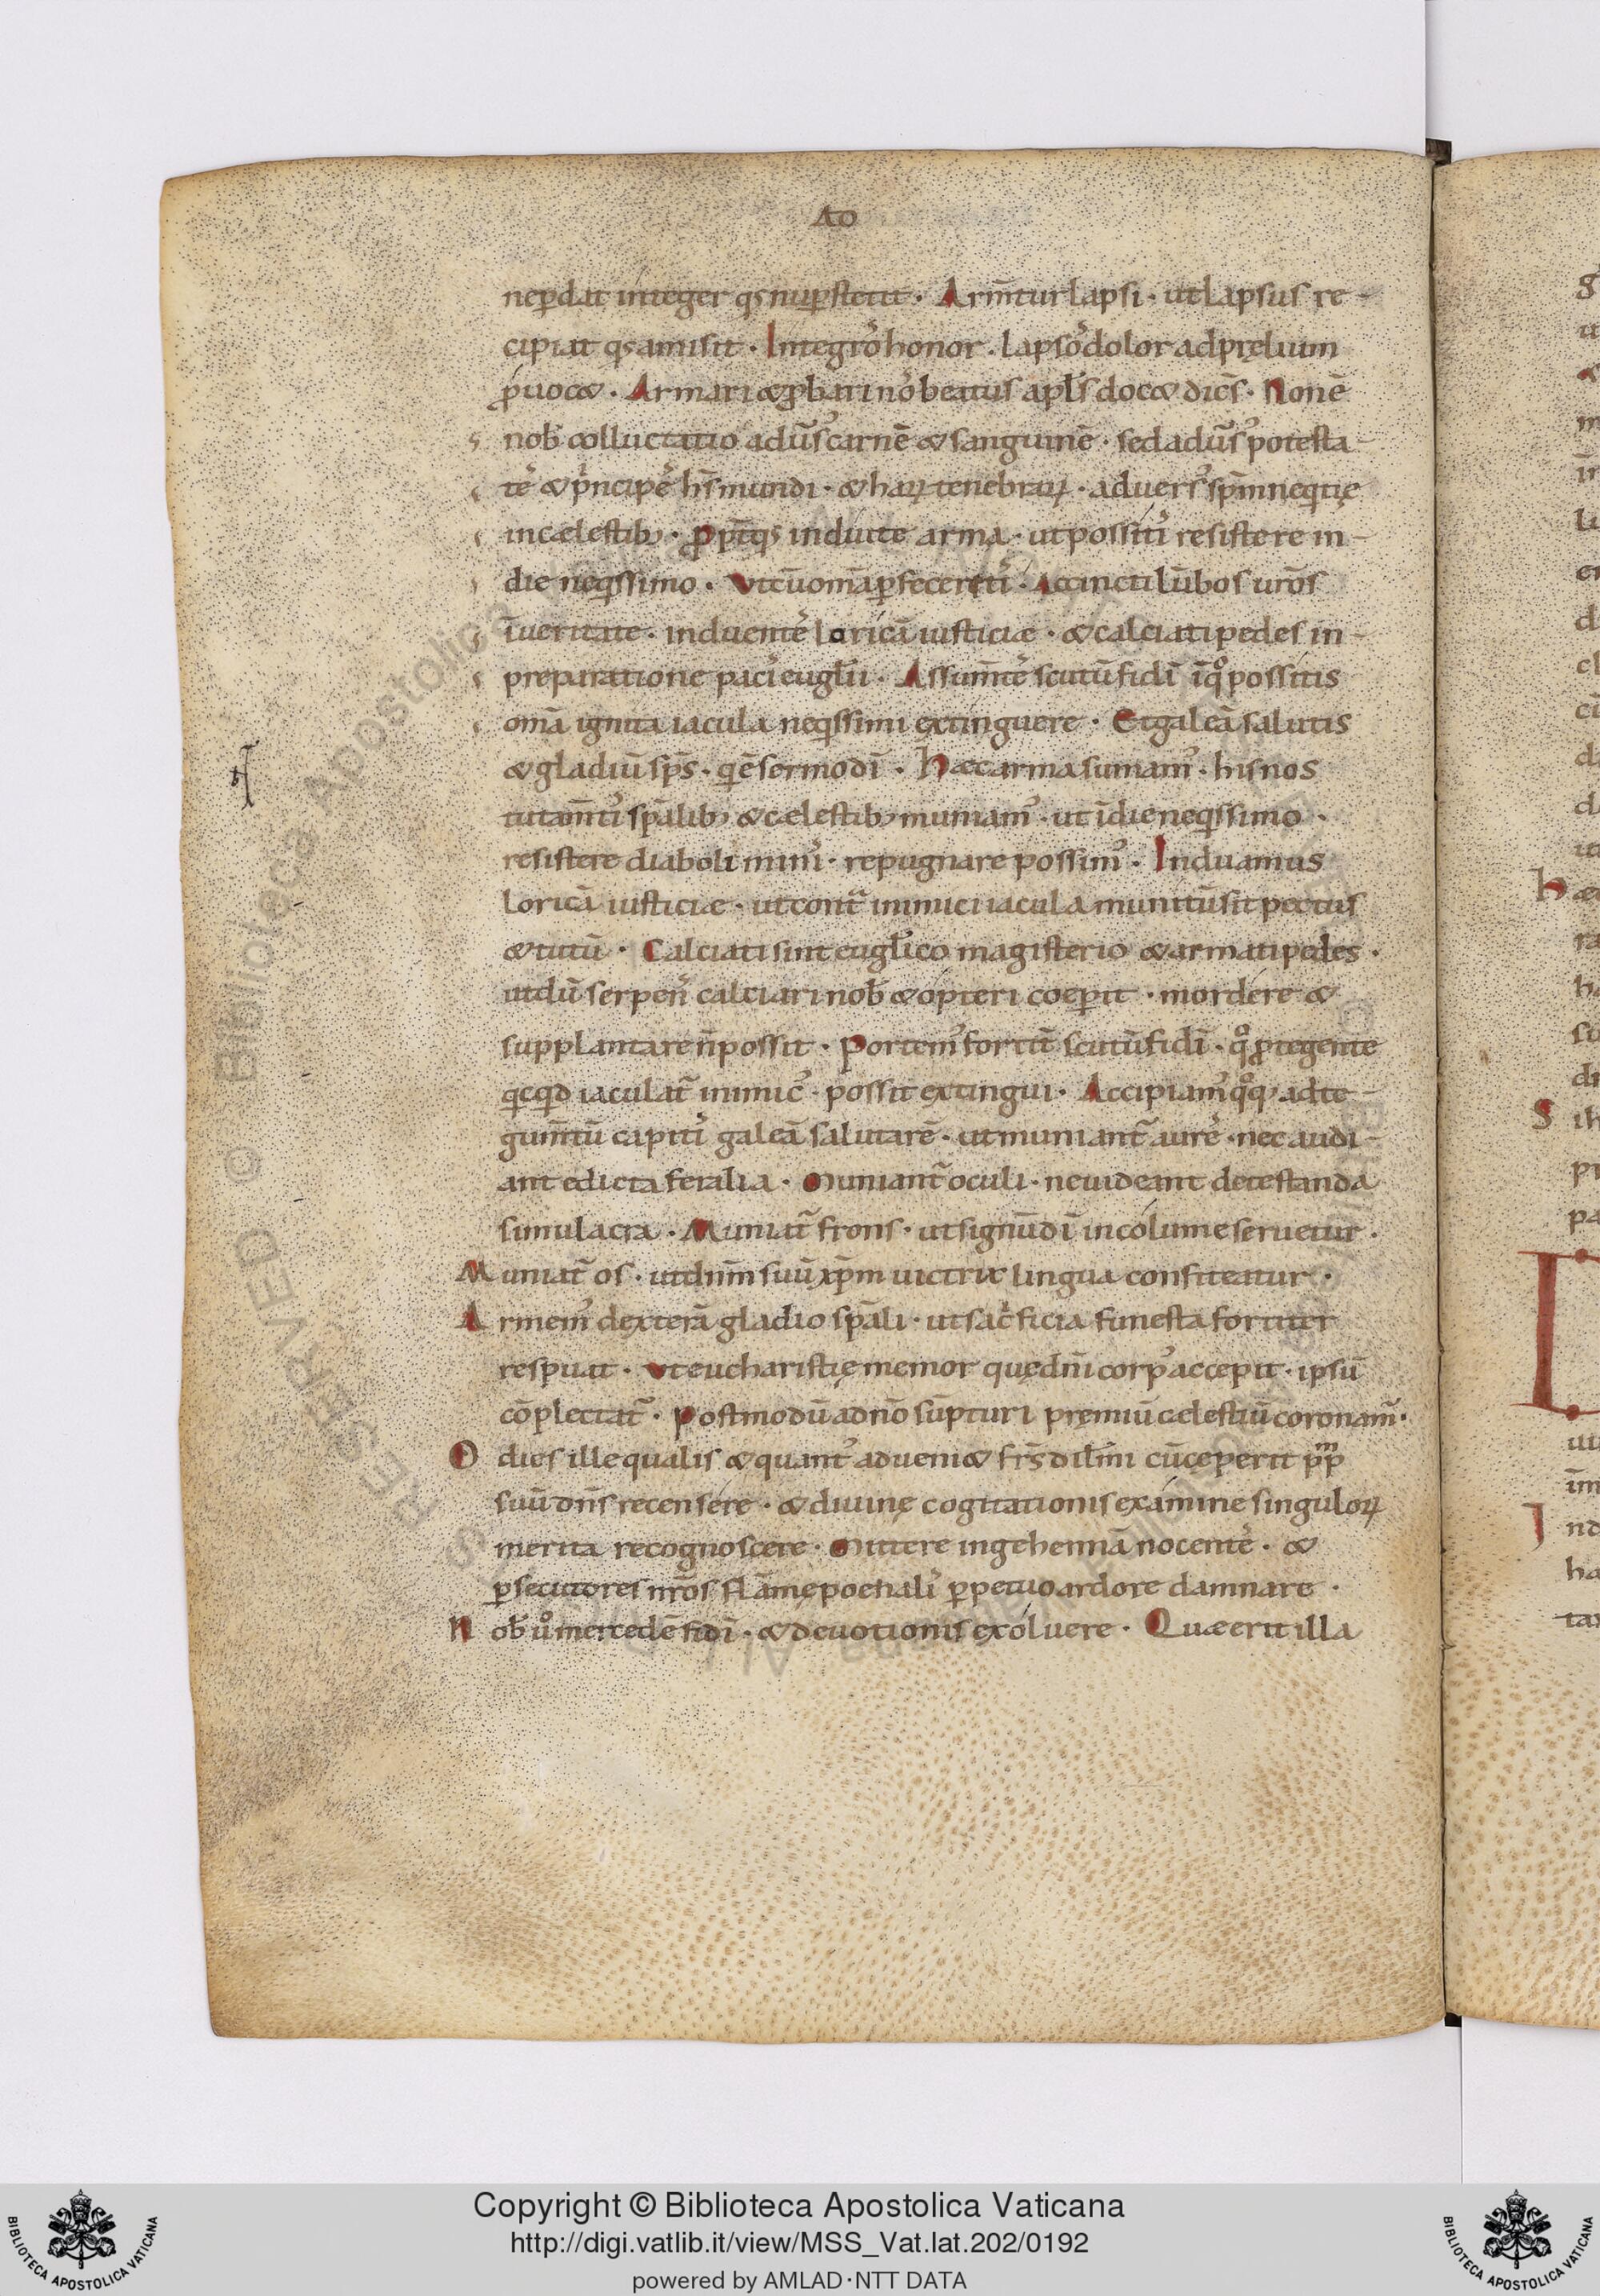 AD
neꝑdat integer qđ nuꝑstetit · Arm̄tur lapsi · ut lapsus re-
cipiat qđ amisit · Integroꝝ honor · lapsoꝝ dolor ad pręlium
ꝓuocet · Armari & p̄parari nos beatus apl̄s docet dicēs · Non ē
nob̄ colluctatio aduꝰ carnē & sanguinē · sed aduꝰ potesta-
tes & principes hꝰ mundi · & harꝝ tenebrarꝝ · aduersꝰ sp̄m neqtię
in cælestibꝫ · Ꝓpt̄ qđ induite arma · ut possitis resistere in-
die neqissimo · Ut cū om̄a ꝑfeceretis · Accincti lūbos ur̄os
ī ueritate · induentes loricā iusticiæ · & calciati pedes in-
preparatione pacis eugl̄ii · Assum̄tes scutū fidī ī qͦ possitis
om̄a ignita iacula neqissimi extinguere · Et galeā salutis
& gladiū sp̄s · qi ē sermo dī · Hæc arma sumamꝰ · his nos
tutam̄tis sp̄alibꝫ & cælestibꝫ muniamꝰ · ut ī die neqissimo ·
resistere diaboli minis · repugnare possimꝰ · Induamus
loricā iusticiæ · ut cont̄ inimici iacula munitū sit pectus
& tutū · Calciati sint eugl̄ico magisterio & armati pedes ·
ut dū serpens calciari nob̄ & opteri coeꝑit · mordere &
supplantare n̄ possit · Portemꝰ fortit̄ scutū fidī · qͦ ꝓtegente
qicqid iaculat̄ inimicꝰ · possit extingui · Accipiamꝰ qͦqꝫ ad te-
gum̄tū capitis galeā salutarē · ut muniant̄ aures · nec audi-
ant edicta feralia · Muniant̄ oculi · ne uideant detestanda
simulacra · Muniat̄ frons · ut signū dī incolume seruetur ·
Muniat̄ os · ut dn̄m suū xp̄m uictrix lingua confiteatur ·
Armemꝰ dexterā gladio sp̄ali · ut sacificia funesta fortiter
respuat · Ut eucharistię memor quę dn̄i corpꝰ accepit · ipsū
cōplectat̄ · Postmodū a dn̄o sūpturi pręmiū cælestiū coronam̄ ·
O dies ille qualis & quantꝰ adueniet frs̄ dil̄mi cū ceperit p̄p̄m
suū dn̄s recensere · & diuinę cogitationis examine singulorꝝ
merita recognoscere · Mittere in gehennā nocentes · &
ꝑsecutores nr̄os flāmę poenalis ꝑpetuo ardore damnare ·
Nob̄ uͦ mercedē fidī · & deuotionis exoluere · Quæ erit illa
Copyright © Biblioteca Apostolica Vaticana
http://digi.vatlib.it/view/MSS_Vat.lat.202/0192
powered by AMLAD·NTT DATA
BIBLIOTECA APOSTOLICA VATICANA
BIBLIOTECA APOSTOLICA VATICANA